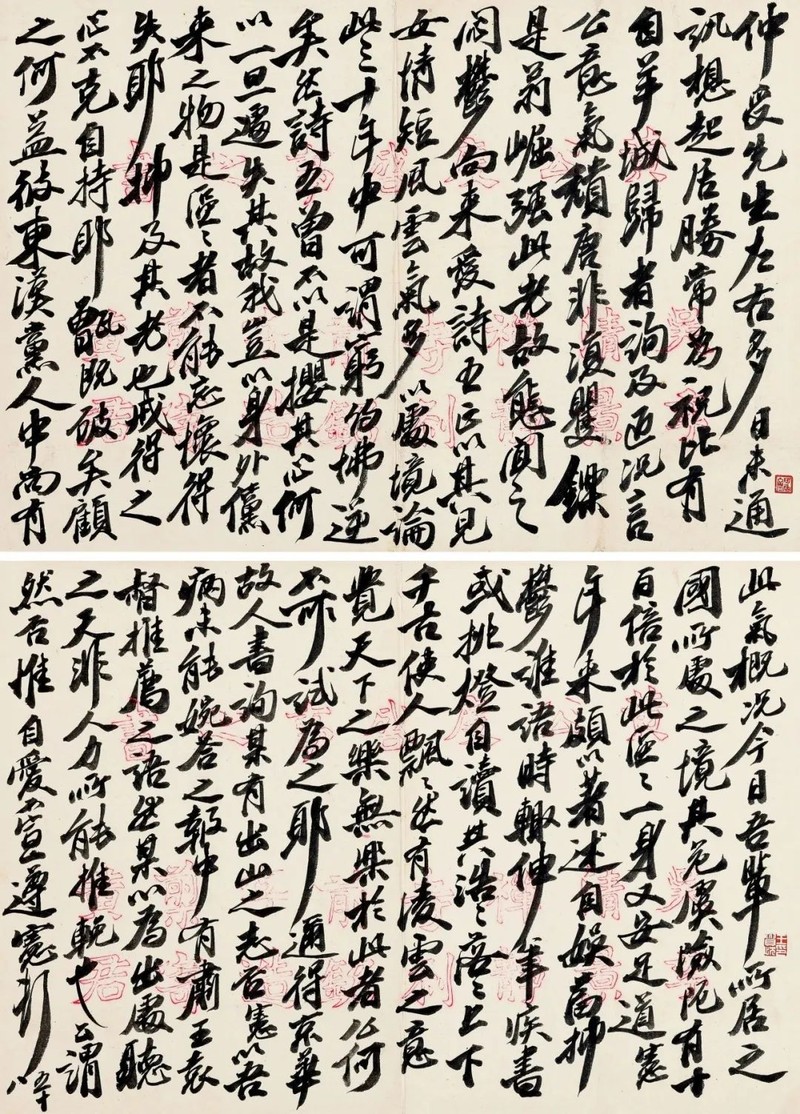 仲先生左右多日未通
訊想起居勝常為祝比有
自羊城歸者詢及近況言
公意氣頹唐非復矍鑠
是翁崛強此老故態聞之
悶鬱向来愛詩五正以其兒
女情短風雲氣多以處境論
此三十年中可謂窮約拂逆
矣然詩五曾不以是攖其心何
以一旦遽失其故我豈以身外儻
来之物是區々者不能忘懷得
失耶抑及其老也戒得之
心不克自持耶甑既破矣顧
之何益彼東漢黨人中尚有
此氣概況今日吾輩所居之
國所處之境其危疑險阨有十
百倍於此區々一身又安足道憲
年来頗以著述自娛當抑
鬱誰語時輒伸筆疾書
或挑燈自讀其浩々落々上下
千古使人飄々然有凌雲之意
覺天下之樂無樂於此者公何
不試為之耶邇得京華
故人書詢某有出山之志否憲以吾
病未能婉答之報中有肅王袁
督推薦之語然某以為出處聽
之天非人力所能推輓也公謂
然否惟自愛不宣遵憲頓